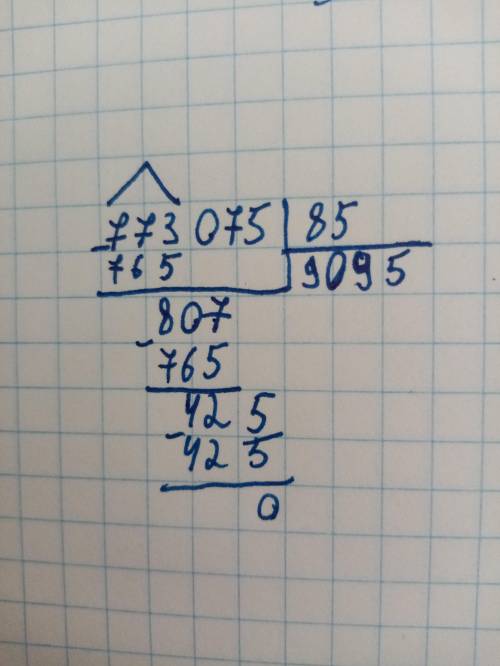 773 075 85
765 9095
807
- 765
425
- 425
0